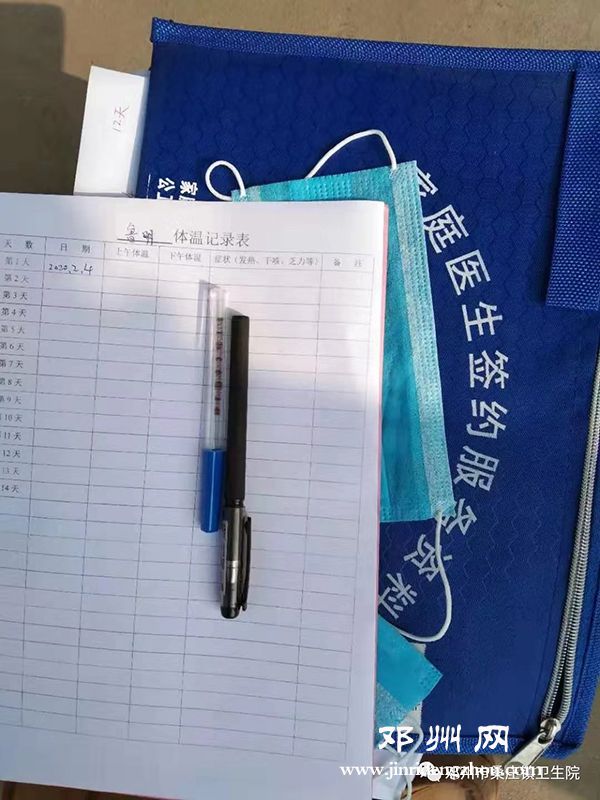 12天
家
公
家庭医生签约服务资料
鲁明 体温记录表
天 数 日 期 上午体温 下午体温 症状（发热、干咳、乏力等） 备 注
第 1 天 2020.2.4
第 2 天
第 3 天
第 4 天
第 5 天
第 6 天
第 7 天
第 8 天
第 9 天
10 天
11 天
12 天
13 天
14 天
邓州网
邓州市桑庄镇卫生院